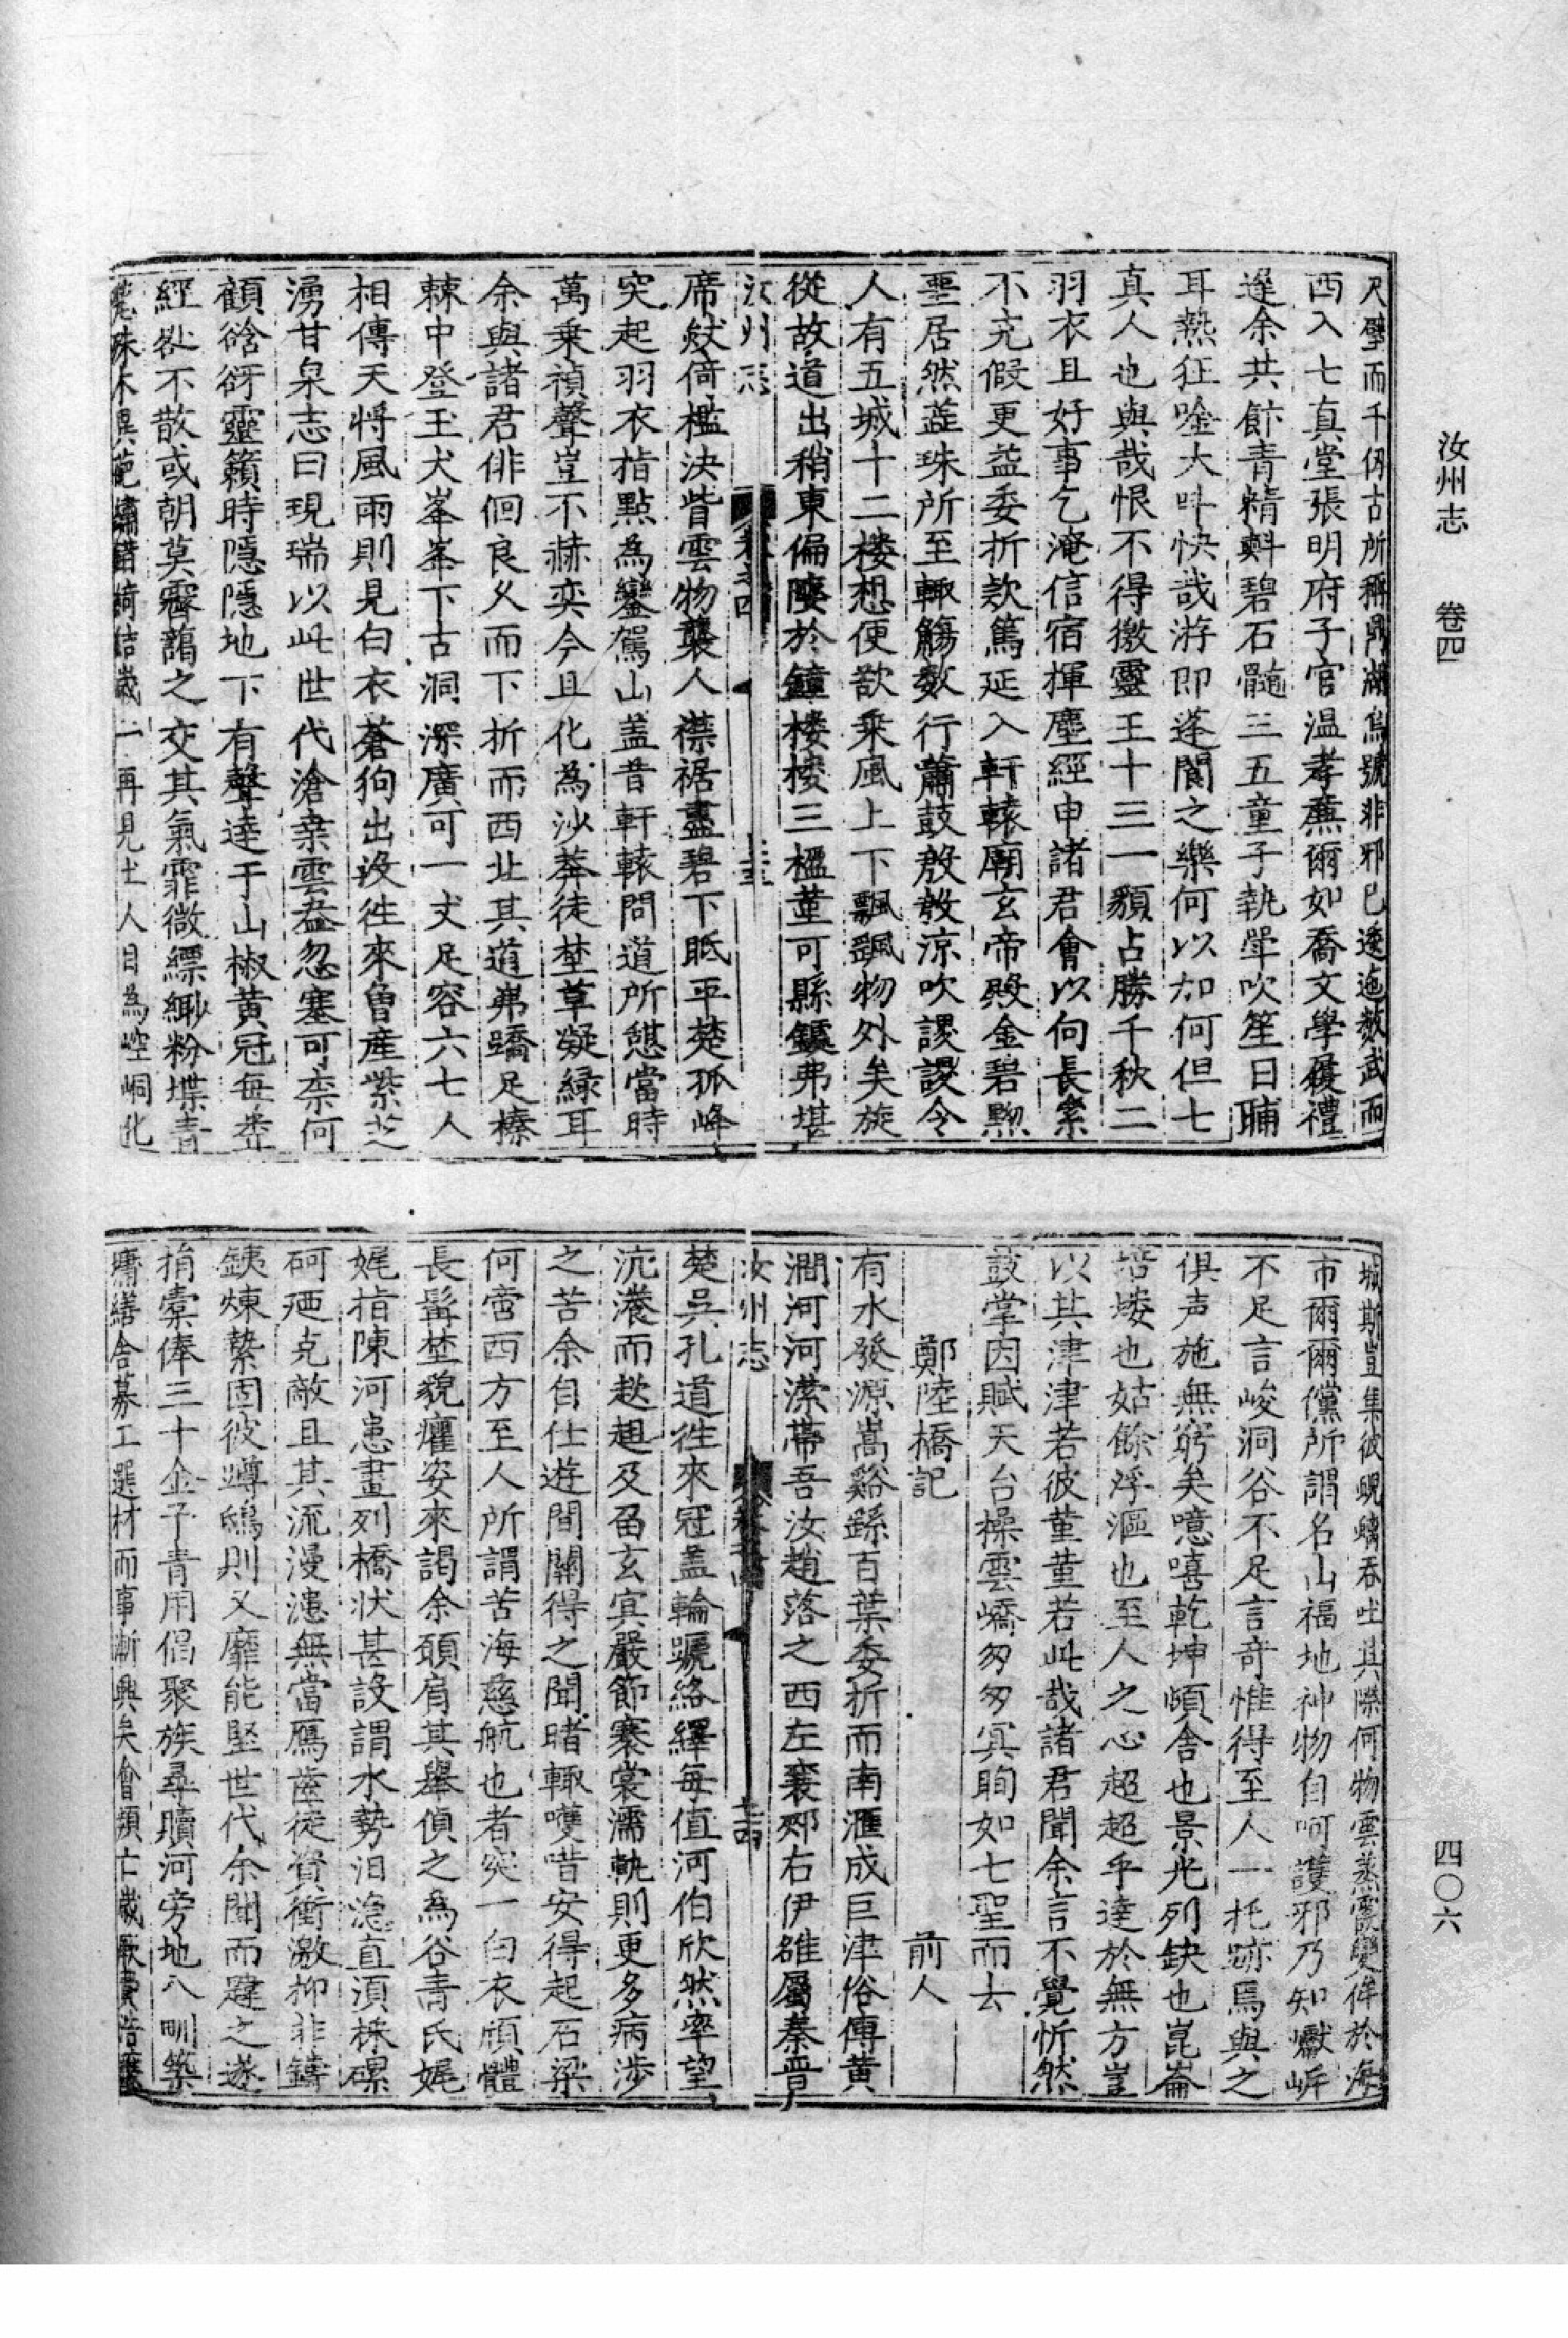 汝州志　卷四
尺壁而千仞古所稱鼎湖烏號非邪已逶迤數武而
西入七真堂張明府子官温孝蕉爾如喬文學履禮
逆余共飰青精斟碧石髓三五童子執犖吹笙日晡
耳熱狂唫大呌快哉游即蓬閬之樂何以加何但七
真人也與哉恨不得撽靈王十三一顙占勝千秋二
羽衣且好事乞淹信宿揮塵經申諸君會以向長絫
不充假更益委折欵篤延入軒轅廟玄帝殿金碧黝
堊居然蕋珠所至輙觴數行蕭鼓殷殷涼吹謖謖令
人有五城十二楼想便欲乘風上下飄颻物外矣旋
從故道出稍東偏陵於鐘楼楼三楹堇可縣鐻弗堪
汝州志
卷之四
席㷉倚檻決眥雲物襲人襟裾盡碧下眂平楚孤峰
突起羽衣指點為鑾駕山盖昔軒轅問道所憇當時
萬乗禎聲豈不赫奕今且化為沙莽徒埜草凝緑耳
余與諸君俳佪良久而下折而西北其道弗蹻足榛
棘中登玉犬峯峯下古洞深廣可一丈足容六七人
相傳天將風雨則見白衣蒼狗出没徃來魯産紫芝
湧甘泉志曰現瑞以此世代滄桒雲盎忽塞可柰何
顧谽谺靈籟時隱隱地下有聲逹于山椒黄冠每誊
經欲不散或朝莫霧藹之交其氣霏微縹緲粉堞青
珠木異葩繡錯綺結歲一再見土人目為崆峒化
城斯豈集彼蜆蠣吞吐其際何物雲蒸霞變侔於海
市爾爾儻所謂名山福地神物自呵護邪乃知巘岓
不足言峻洞谷不足言竒惟得至人一托跡焉與之
俱声施無窮矣噫嘻乾坤頔舍也景光列缺也崑崙
培塿也姑餘浮漚也至人之心超超乎達於無方豈
以其津津若彼堇堇若此哉諸君聞余言不覺忻然
鼓掌因賦天台操雲嶠匆匆㝠眗如七聖而去
鄭陸橋記　前人
有水發源嵩谿繇百葉委折而南滙成巨津俗傳黄
澗河河瀠帶吾汝趙落之西左襄郟右伊雒屬秦晋
汝州志
卷之四
楚吳孔道徃來冠盖輪蹏絡繹每值河伯欣然率望
沆瀁而趑趄及畱玄㝠嚴節褰裳濡軌則更多病涉
之苦余自仕遊間關得之聞睹輙嘆唶安得起石梁
何啻西方至人所謂苦海慈航也者突一白衣頎體
長髯埜貌癯安來謁余頎肩其舉偵之為谷青氏娓
娓指陳河患畫列橋状甚設謂水勢汩㴔直湏株磥
砢廼克敵且其流漫漶無當鴈齒徒資衝激抑非鑄
銕煉縶固彼蹲鴟則又靡能堅世代余聞而韙之遂
捐橐俸三十金子青用倡聚族尋贖河旁地八甽築
墉繕舍募工選材而事漸興矣會頻亡歲厥費浩
四〇六